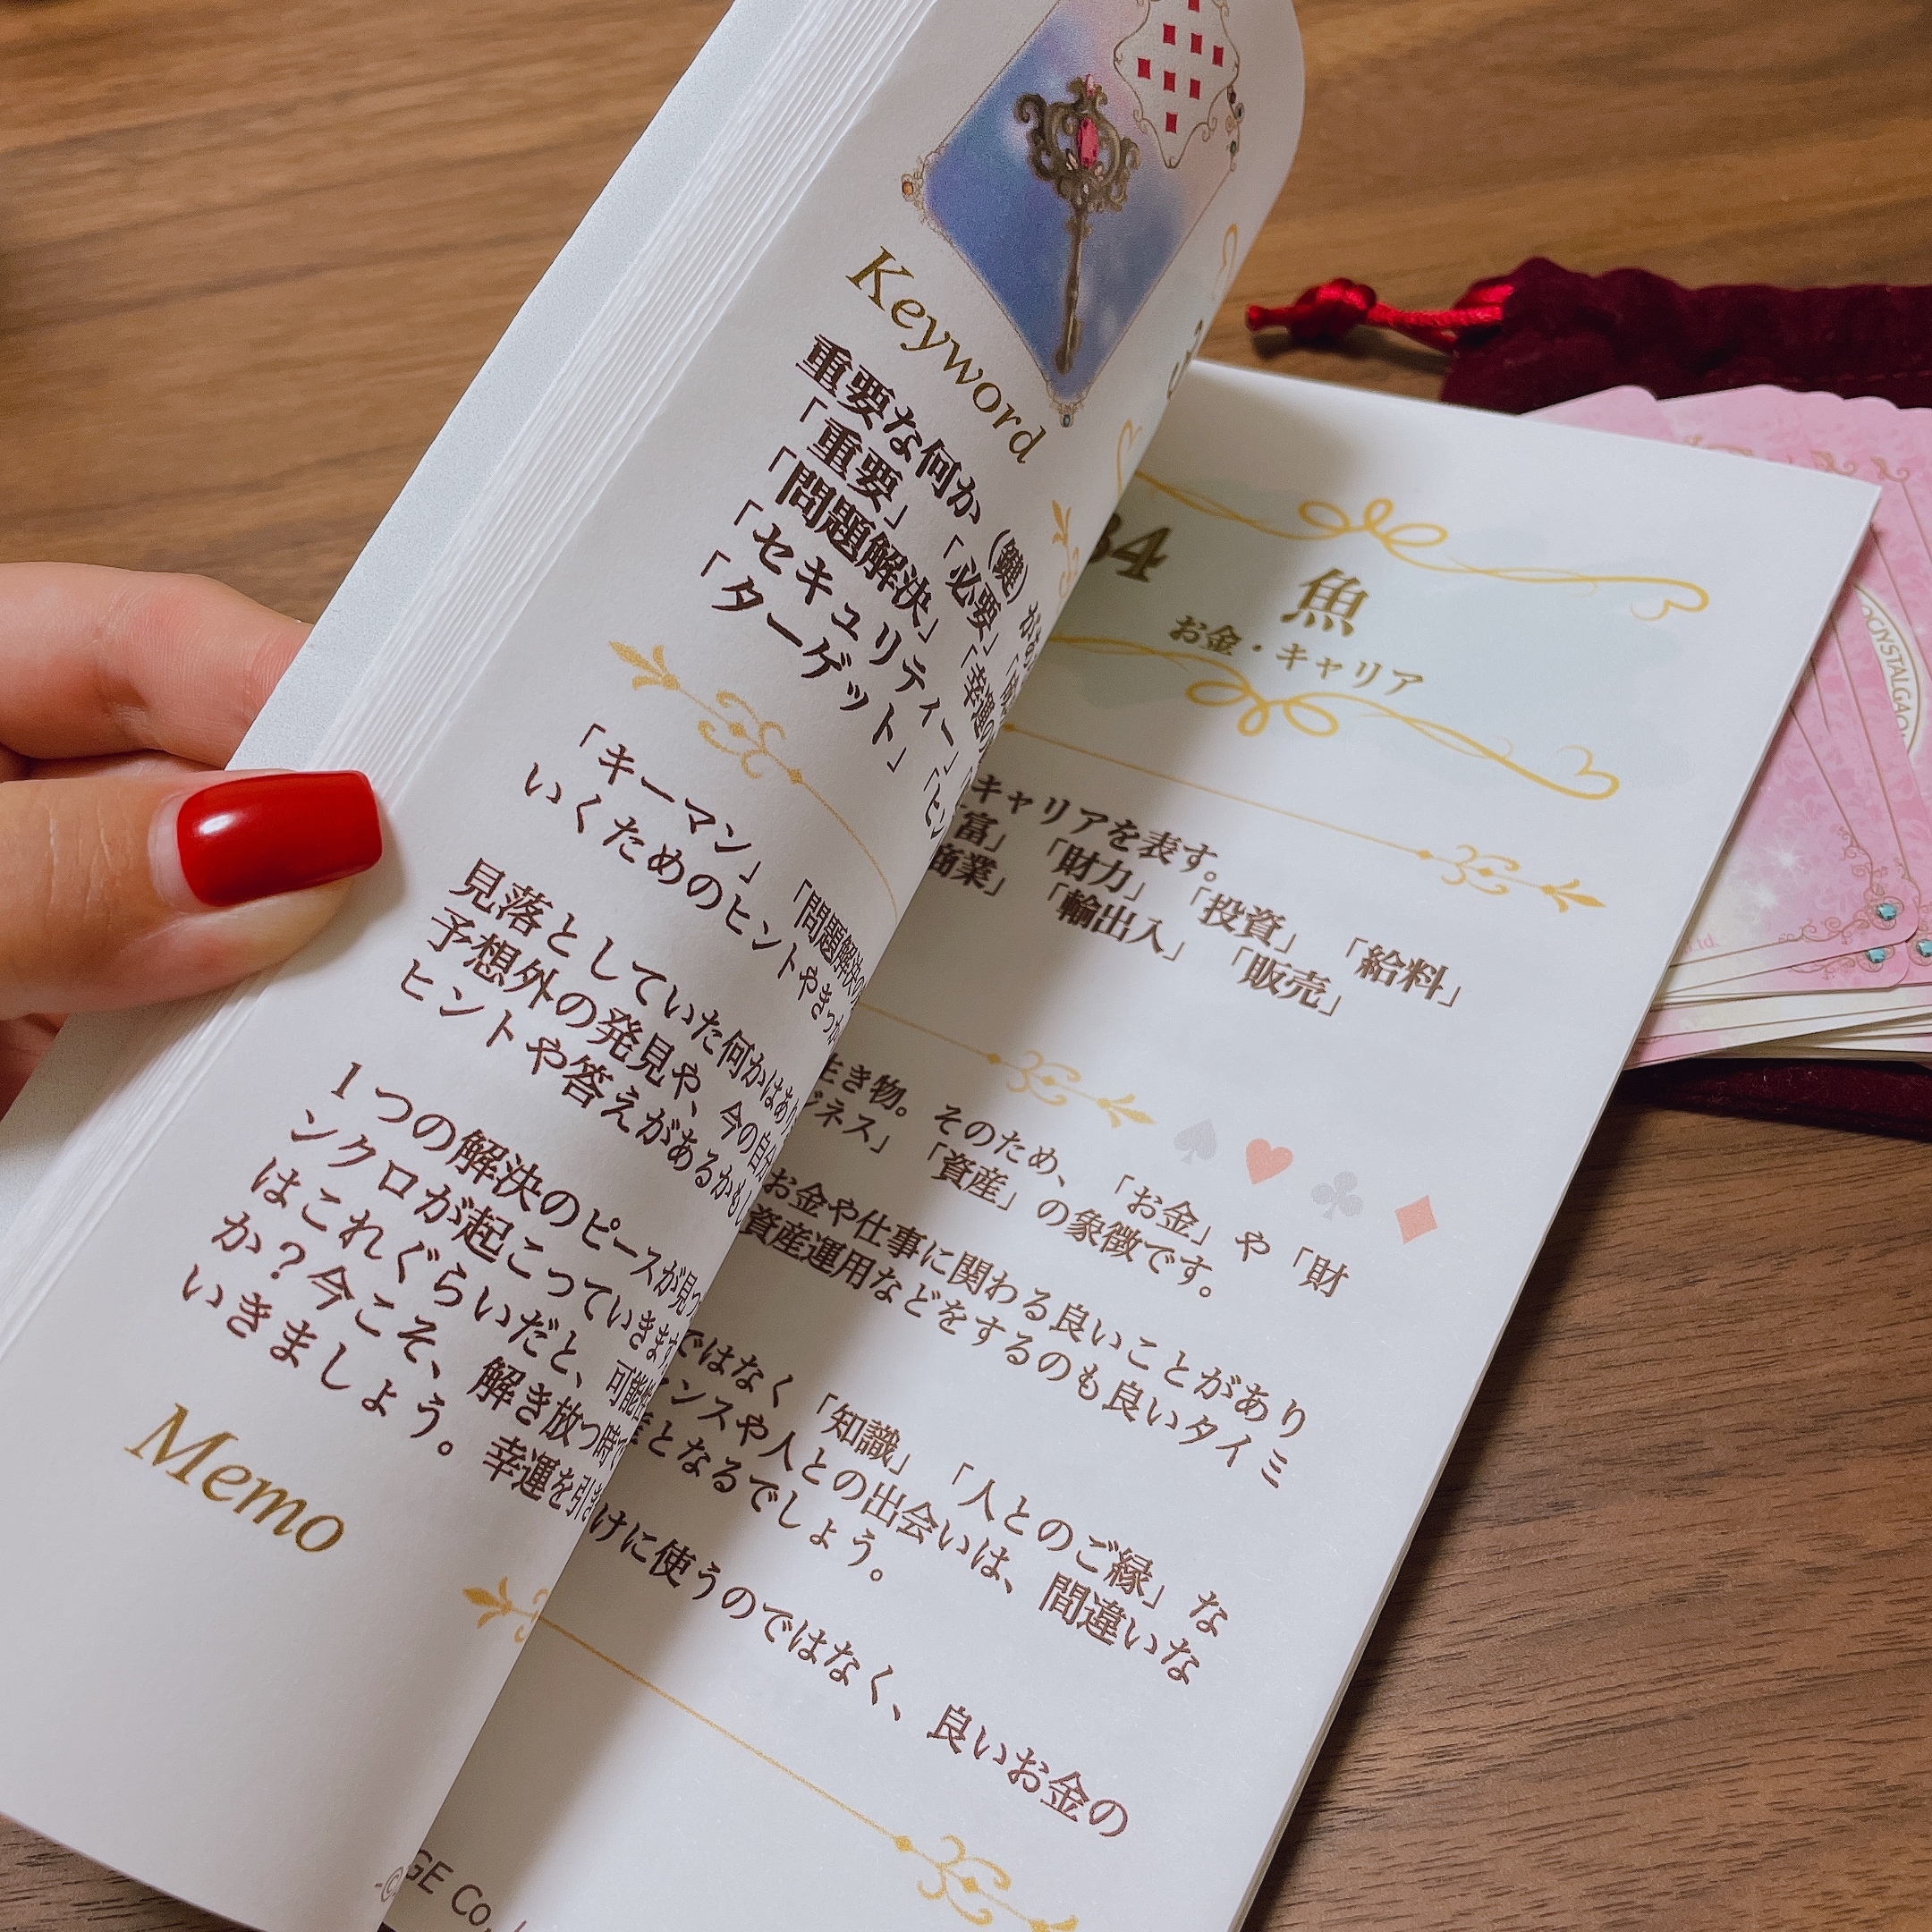 Keyword
重要な何か(鍵)があ
「重要」「必要」「成
「問題解決」「幸運の
「セキュリティー」「ヒン
「ターゲット」
「キーマン」「問題解決の
いくためのヒントやきっか
見落としていた何かはあり
予想外の発見や、今の自分
ヒントや答えがあるかもし
1つの解決のピースが見つ
ンクロが起こっていきます
はこれぐらいだと、可能性
か?今こそ、解き放つ時で
いきましょう。幸運を引き
Memo
34
魚
お金・キャリア
キャリアを表す。
富」「財力」「投資」「給料」
商業」「輸出入」「販売」
生き物。そのため、「お金」や「財
ジネス」「資産」の象徴です。
お金や仕事に関わる良いことがあり
資産運用などをするのも良いタイミ
ではなく「知識」「人とのご縁」な
ンスや人との出会いは、間違いな
産となるでしょう。
けに使うのではなく、良いお金の
GE Co,